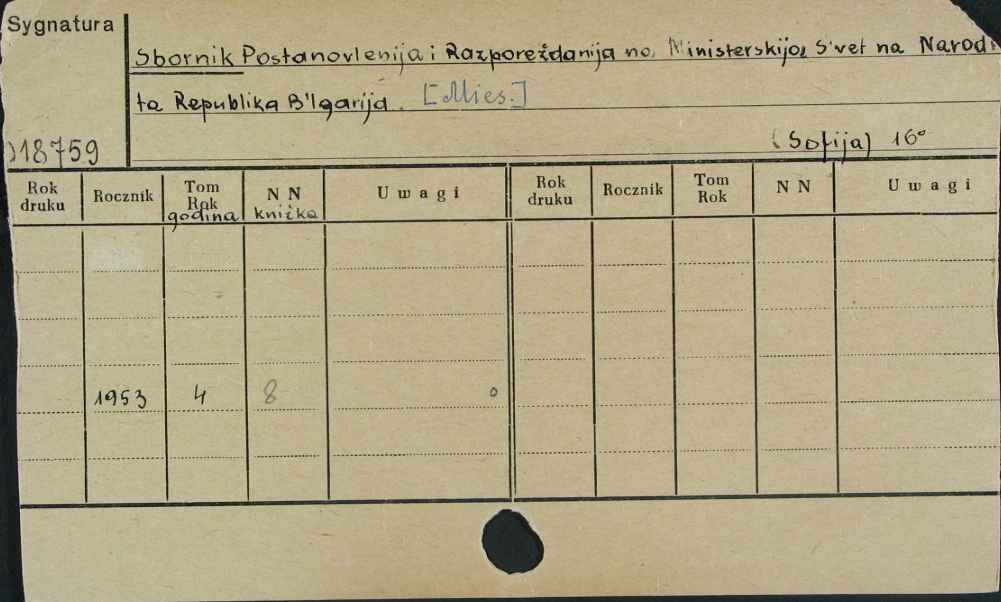 Sygnatura
Sbornik Postanovlenija i Razporeždanija na Ministerskija S'vet na Narodn
ta Republika B'lgarija. [Mies.]
18759
(Sofija) 16°
Rok druku Rocznik Tom Rok godina N N knižka U w a g i Rok druku Rocznik Tom Rok N N U w a g i
1953 4 8 o